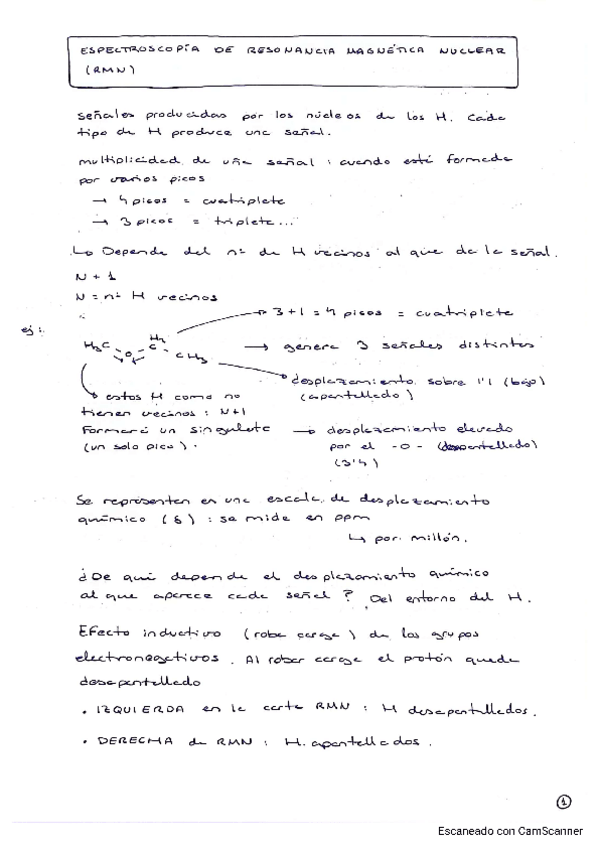 ESPECTROSCOPÍA DE RESONANCIA MAGNÉTICA NUCLEAR
(RMN)
señales producidas por los núcleos de los H. Cada
tipo de H produce una señal.
multiplicidad de una señal : cuando está formada
por varios picos
→ 4 picos = cuatriplete
→ 3 picos = triplete...
Lo Depende del nº de H vecinos al que da la señal.
N + 1
N = nº H vecinos
3 + 1 = 4 picos = cuatriplete
ej :
H₃C - O - C H₂ - CH₃ → genera 3 señales distintas
desplazamiento sobre 1'1 (bajo)
(apantallado)
estos H como no
tienen vecinos : N+1
Formará un singulete
(un solo pico).
→ desplazamiento elevado
por el -O- (desapantallado)
(3'4)
Se representan en una escala de desplazamiento
químico (δ) : se mide en ppm
↳ por millón.
¿De qué depende el desplazamiento químico
al que aparece cada señal ? Del entorno del H.
Efecto inductivo (roba carga) de los grupos
electronegativos. Al robar carga el protón queda
desapantallado
• IZQUIERDA en la carta RMN : H desapantallados.
• DERECHA de RMN : H apantallados.
1
Escaneado con CamScanner